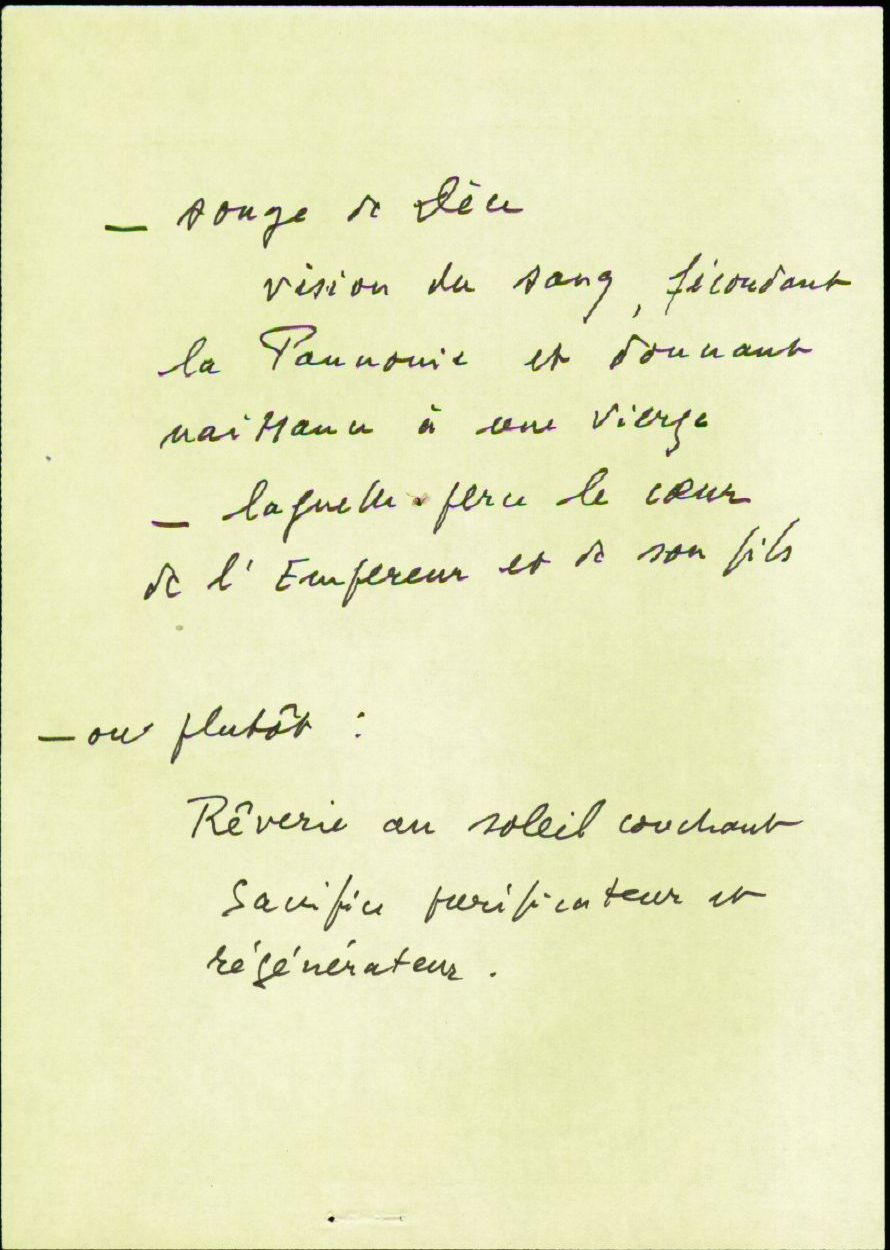 — songe de Dèce
vision du sang, fécondant
la Pannonie et donnant
naissance à une vierge
— laquelle perce le cœur
de l'Empereur et de son fils
— ou plutôt :
Rêverie au soleil couchant
Sacrifice purificateur et
régénérateur.